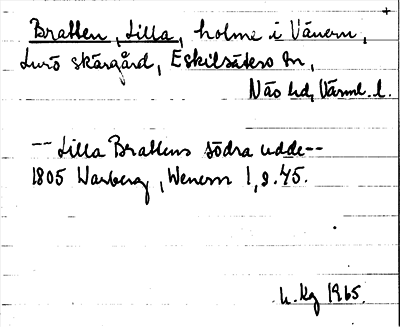 +
Bratten, Lilla, holme i Vänern,
Lurö skärgård, Eskilsäters sn,
Näs hd, Värml. l.
-- Lilla Brattens södra udde--
1805 Warberg, Wenern 1, s. 45.
1965.